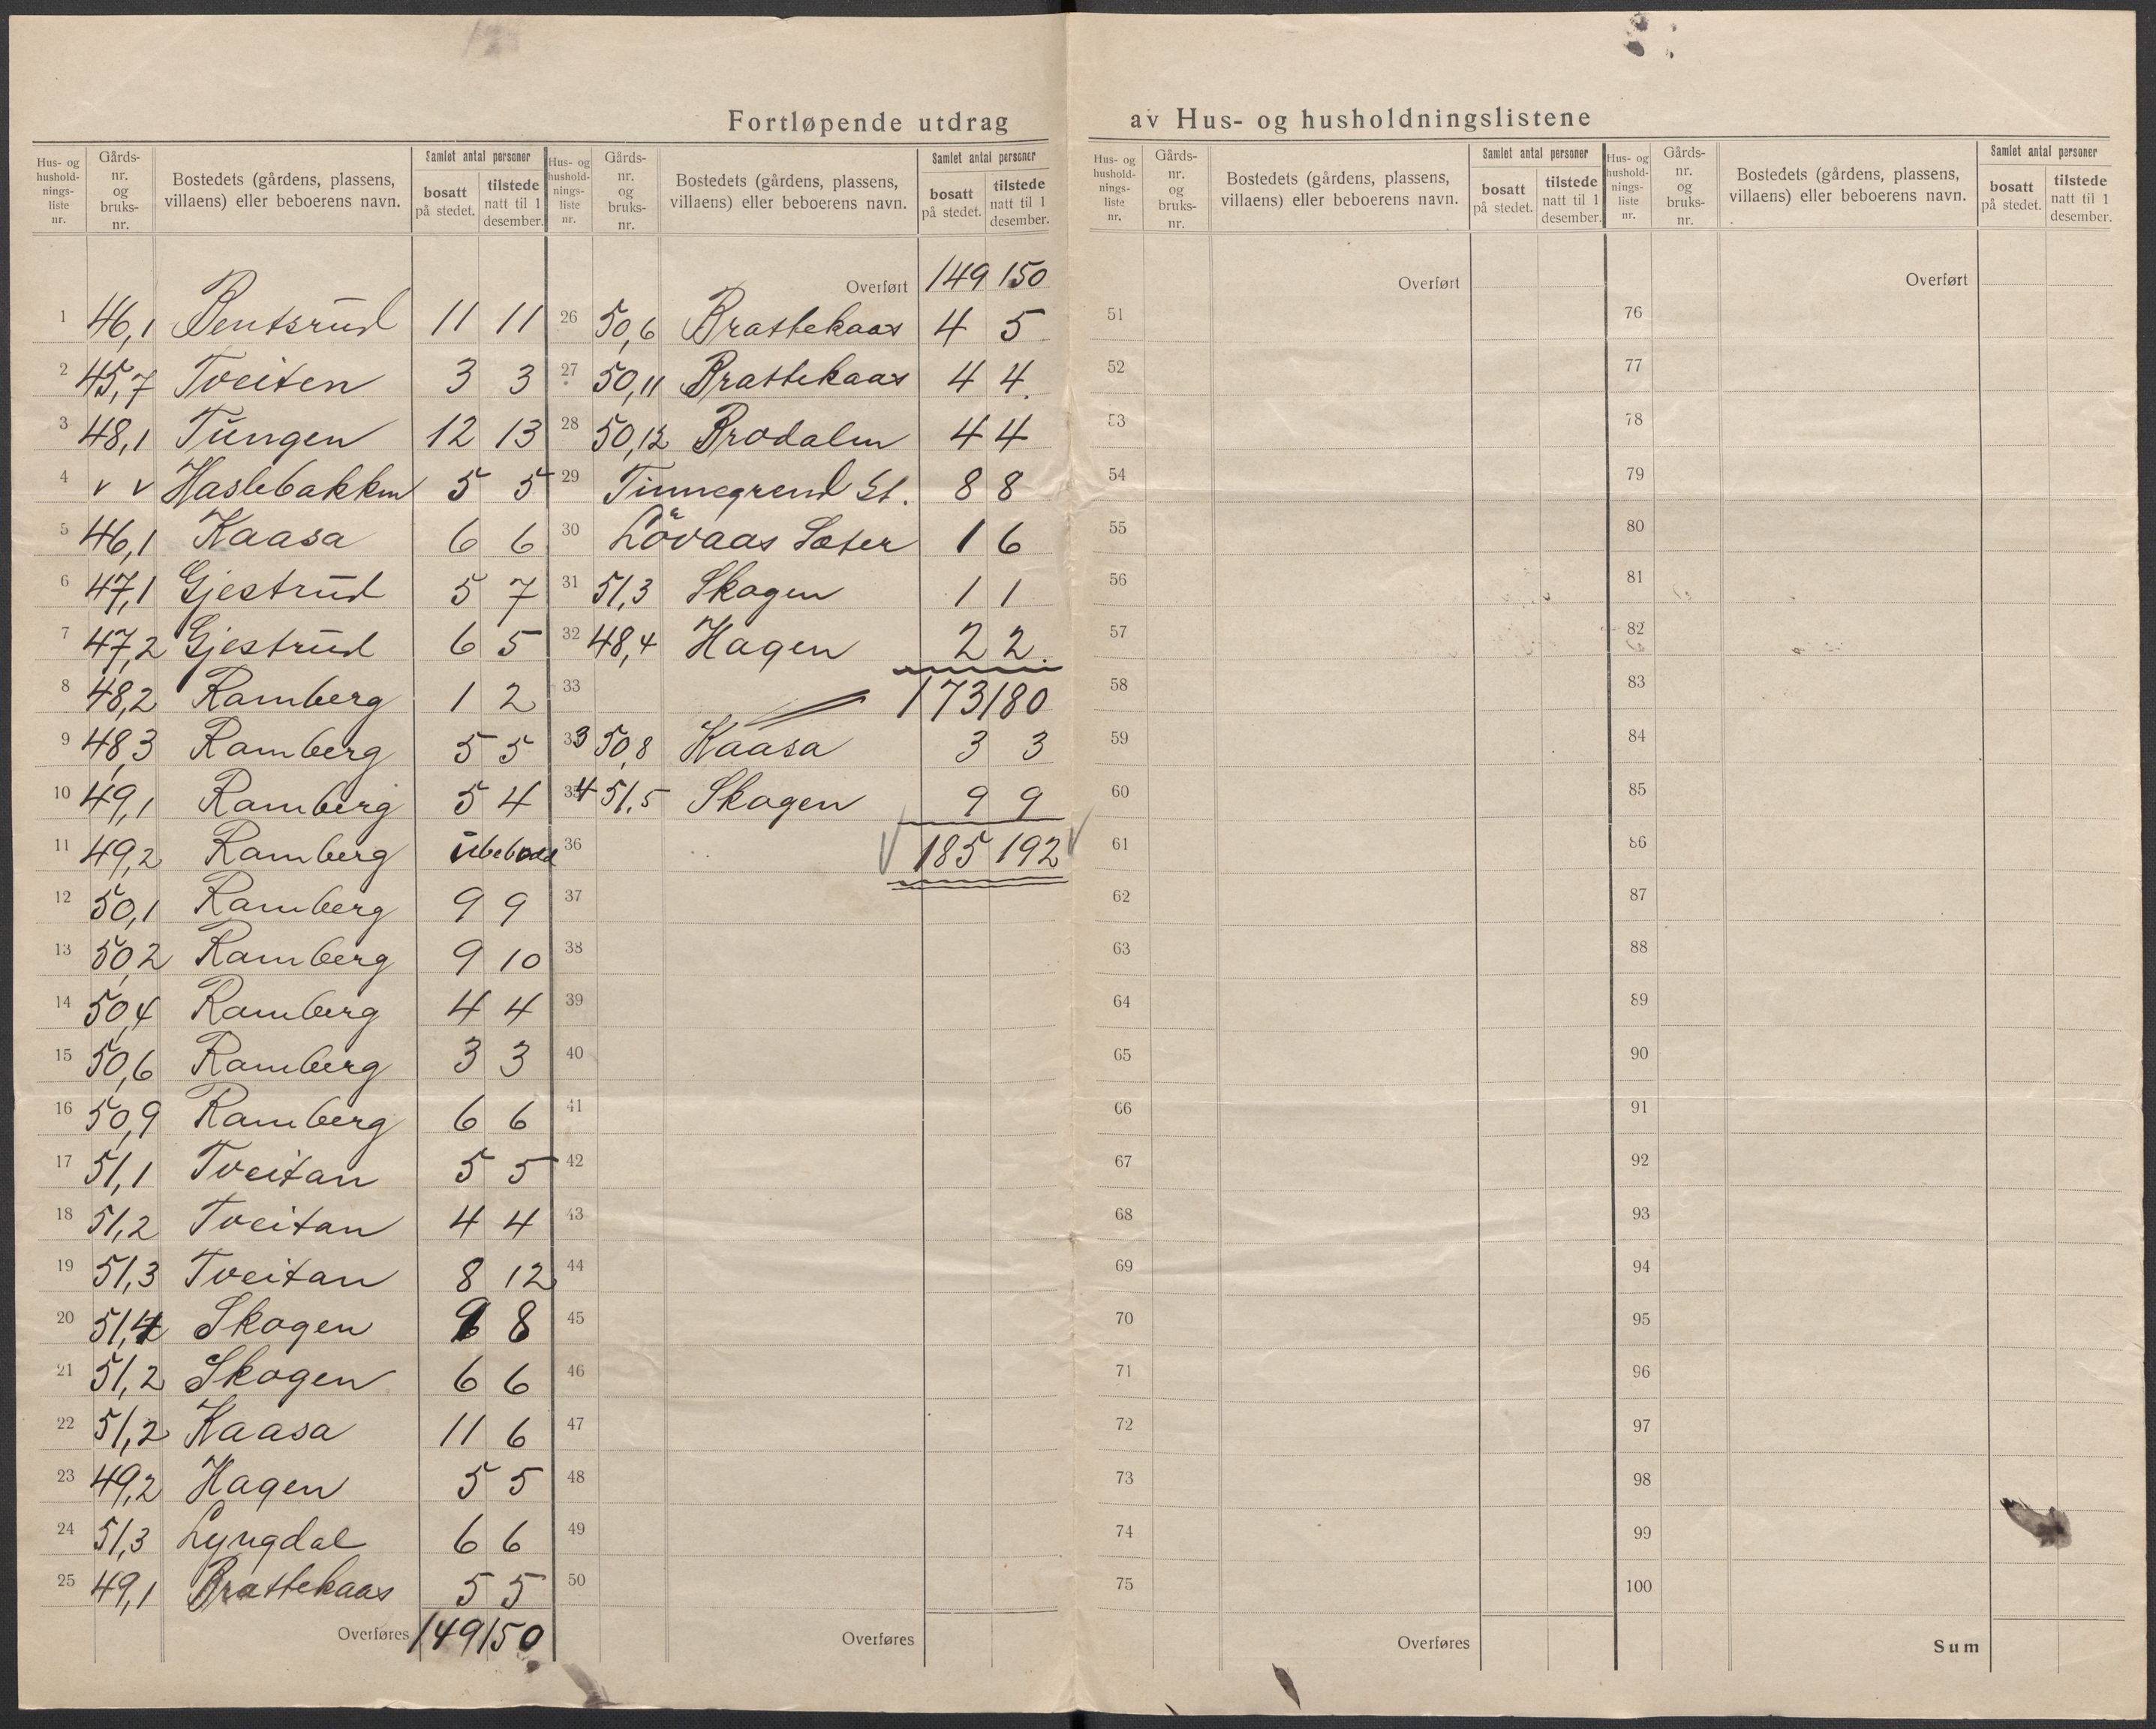 Fortløpende utdrag av Hus- og husholdningslistene
Hus- og hushold- nings- liste nr. Gårds- nr. og bruks- nr. Bostedets (gårdens, plassens, villaens) eller beboerens navn. Samlet antal personer bosatt på stedet. tilstede natt til 1 desember.
1 46,1 Bentsrud 11 11
2 45,7 Tveiten 3 3
3 48,1 Tungen 12 13
4 v v Haslebakken 5 5
5 46,1 Kaasa 6 6
6 47,1 Gjestrud 5 7
7 47,2 Gjestrud 6 5
8 48,2 Ramberg 1 2
9 48,3 Ramberg 5 5
10 49,1 Ramberg 5 4
11 49,2 Ramberg ubebodd
12 50,1 Ramberg 9 9
13 50,2 Ramberg 9 10
14 50,4 Ramberg 4 4
15 50,6 Ramberg 3 3
16 50,9 Ramberg 6 6
17 51,1 Tveitan 5 5
18 51,2 Tveitan 4 4
19 51,3 Tveitan 8 12
20 51,4 Skogen 8
21 51,2 Skogen 6 6
22 51,2 Kaasa 11 6
23 49,2 Hagen 5 5
24 51,3 Lyngdal 6 6
25 49,1 Brattekaas 5 5
Overføres 149 150
Hus- og hushold- nings- liste nr. Gårds- nr. og bruks- nr. Bostedets (gårdens, plassens, villaens) eller beboerens navn. Samlet antal personer bosatt på stedet. tilstede natt til 1 desember.
Overført 149 150
26 50,6 Brattekaas 4 5
27 50,11 Brattekaas 4 4
28 50,12 Brodalen 4 4
29 Tinnegrend St. 8 8
30 Lövaas Sæter 1 6
31 51,3 Skogen 1 1
32 48,4 Hagen 2 2
33 173 180
33 50,8 Kaasa 3 3
34 51,5 Skogen 9 9
36 185 192
37
38
39
40
41
42
43
44
45
46
47
48
49
50
Overføres
Hus- og hushold- nings- liste nr. Gårds- nr. og bruks- nr. Bostedets (gårdens, plassens, villaens) eller beboerens navn. Samlet antal personer bosatt på stedet. tilstede natt til 1 desember.
Overført
51
52
53
54
55
56
57
58
59
60
61
62
63
64
65
66
67
68
69
70
71
72
73
74
75
Overføres
Hus- og hushold- nings- liste nr. Gårds- nr. og bruks- nr. Bostedets (gårdens, plassens, villaens) eller beboerens navn. Samlet antal personer bosatt på stedet. tilstede natt til 1 desember.
Overført
76
77
78
79
80
81
82
83
84
85
86
87
88
89
90
91
92
93
94
95
96
97
98
99
100
Sum